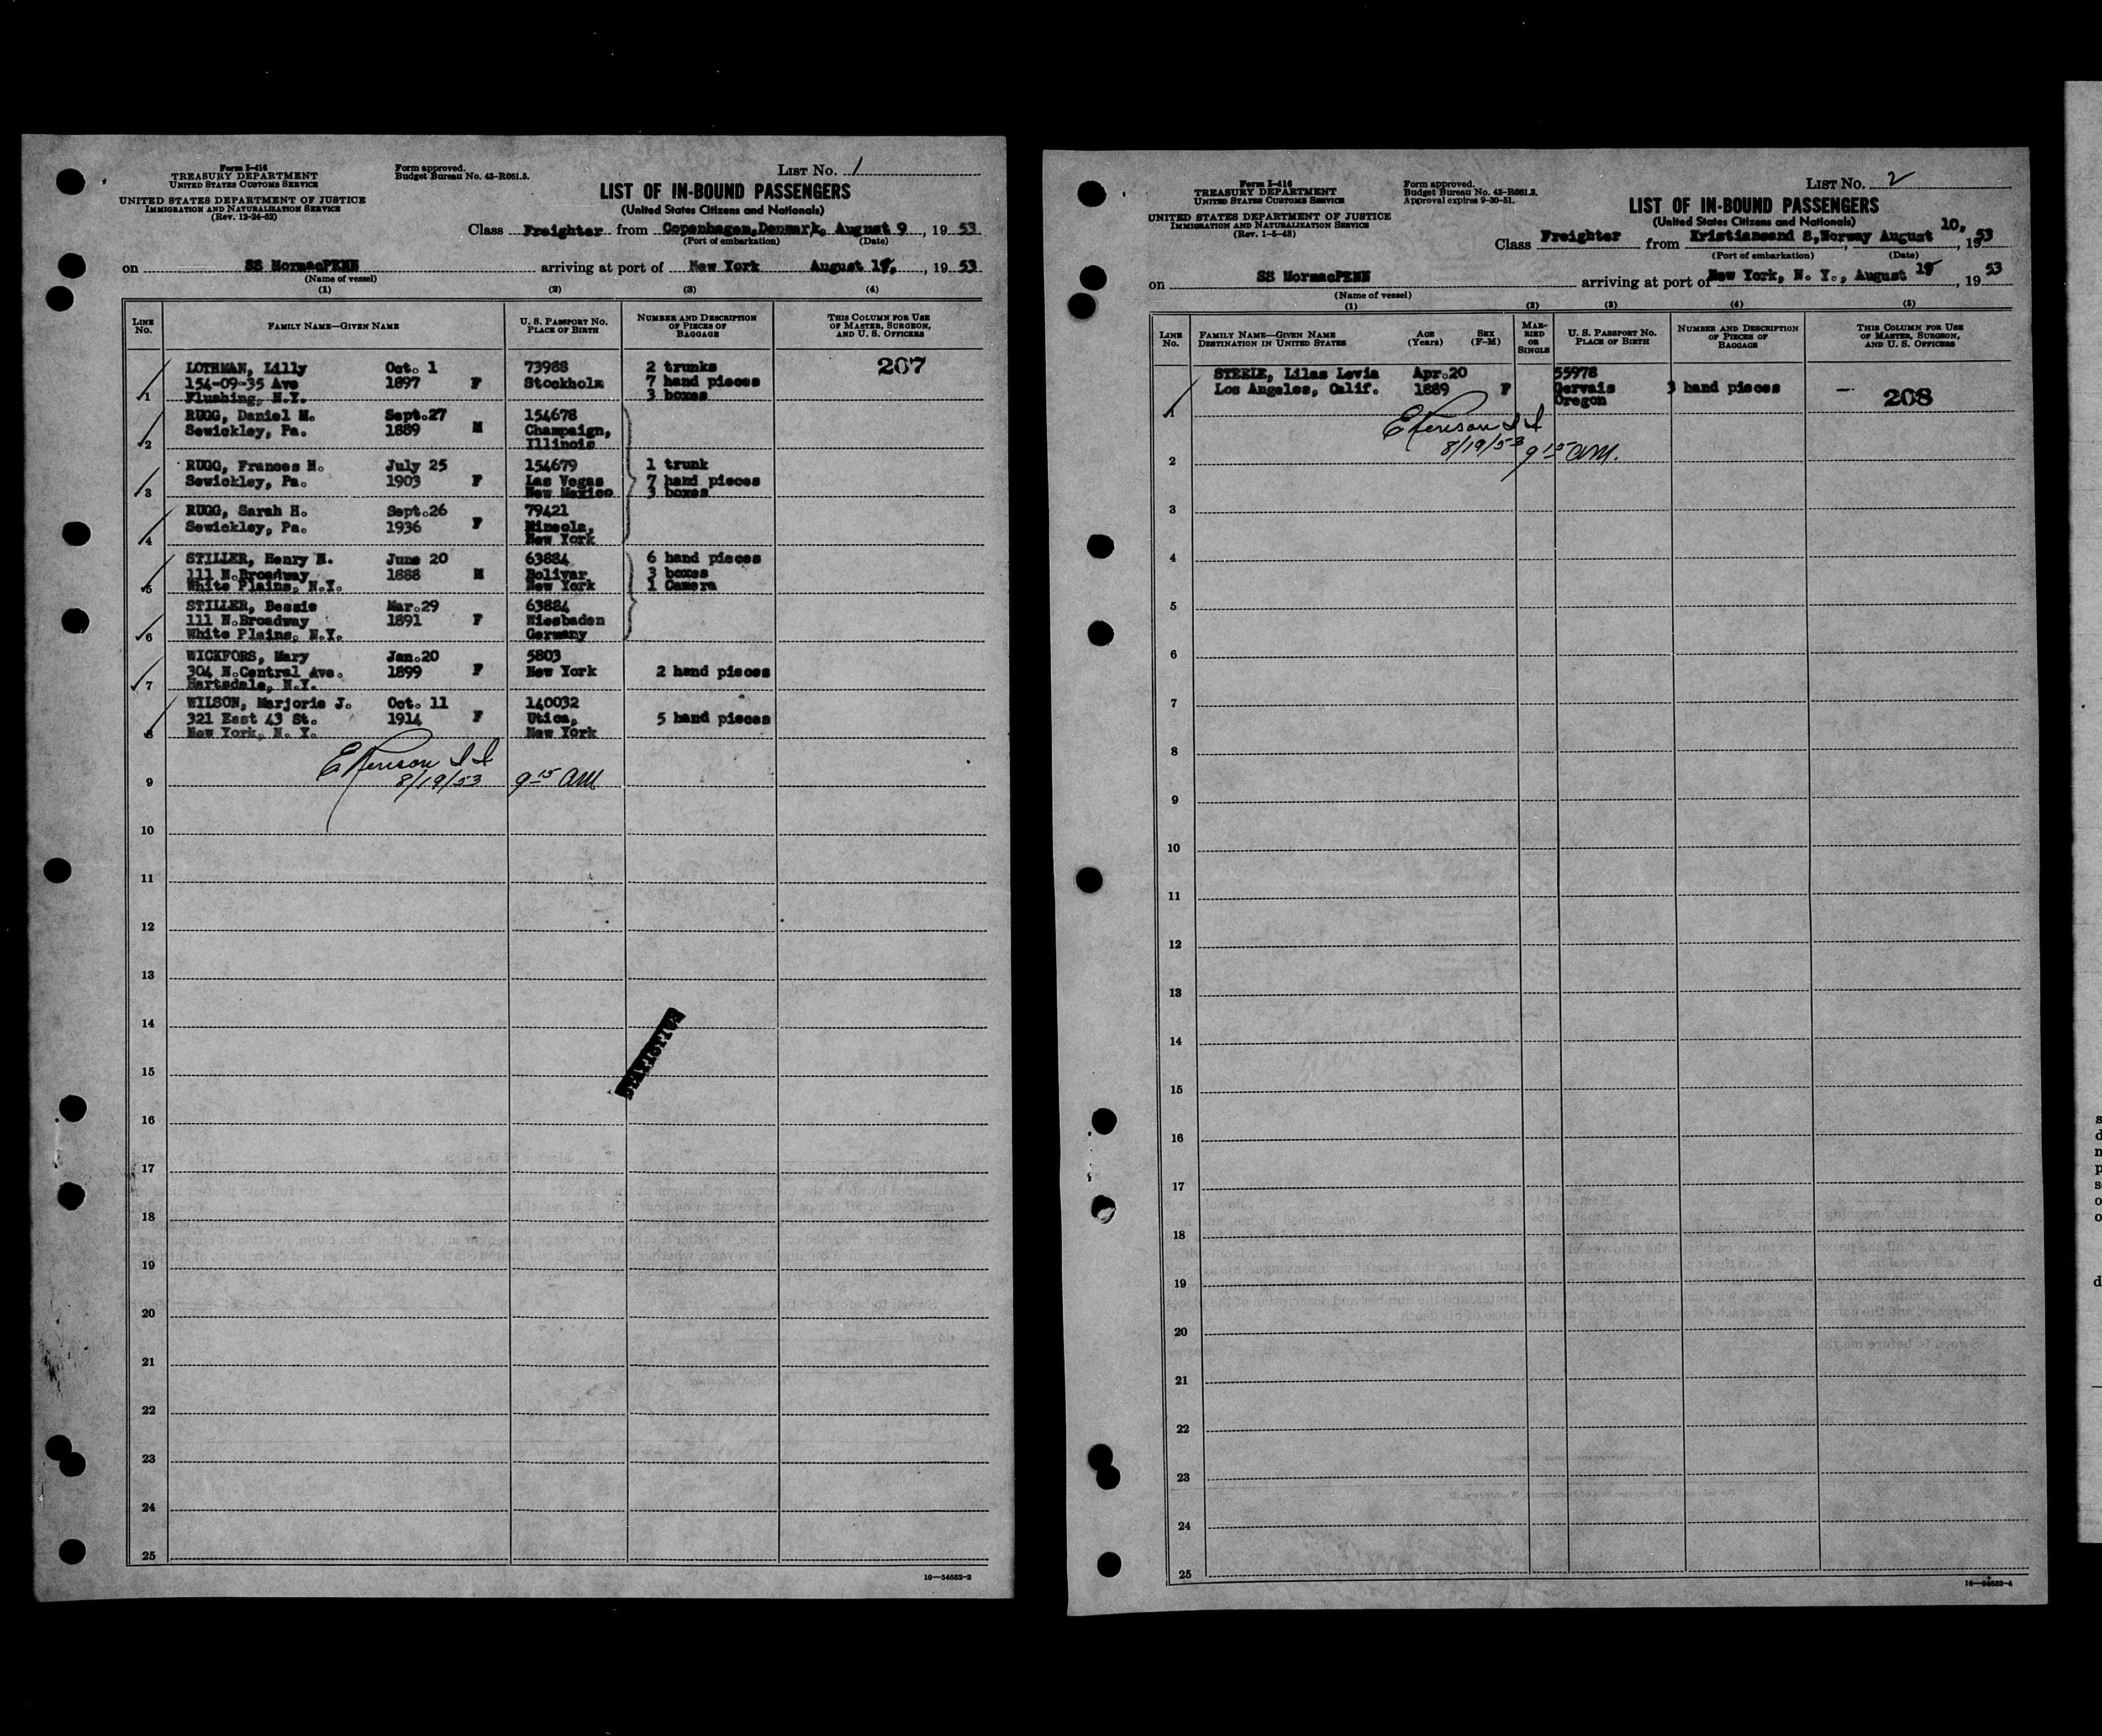 Form I-416
TREASURY DEPARTMENT
UNITED STATES CUSTOMS SERVICE
UNITED STATES DEPARTMENT OF JUSTICE
IMMIGRATION AND NATURALIZATION SERVICE
(Rev. 12-24-52)
Form approved.
Budget Bureau No. 43-R061.3.
LIST NO. 1
LIST OF IN-BOUND PASSENGERS
(United States Citizens and Nationals)
Class Freighter from Copenhagen, Denmark, August 9, 1953
(Port of embarkation) (Date)
on SS MormacPENN arriving at port of New York August 19, 1953
(Name of vessel)
(1) (2) (3) (4)
LINE NO. FAMILY NAME—GIVEN NAME U. S. PASSPORT NO. PLACE OF BIRTH NUMBER AND DESCRIPTION OF PIECES OF BAGGAGE THIS COLUMN FOR USE OF MASTER, SURGEON, AND U. S. OFFICERS
LOTHMAN, Lilly Oct. 1 73988 2 trunks 207
154-09-35 Ave 1897 F Stockholm 7 hand pieces
1 Flushing, N.Y. 3 boxes
RUGG, Daniel M. Sept.27 154678
Sewickley, Pa. 1889 M Champaign,
2 Illinois
RUGG, Frances H. July 25 154679 1 trunk
Sewickley, Pa. 1903 F Las Vegas 7 hand pieces
3 New Mexico 3 boxes
RUGG, Sarah H. Sept.26 79421
Sewickley, Pa. 1936 F Mineola,
4 New York
STILLER, Henry N. June 20 63884 6 hand pieces
111 N.Broadway 1888 M Bolivar 3 boxes
5 White Plains, N.Y. New York 1 Camera
STILLER, Bessie Mar.29 63884
111 N.Broadway 1891 F Wiesbaden
6 White Plains, N.Y. Germany
WICKFORS, Mary Jan.20 5803
304 N.Central Ave. 1899 F New York 2 hand pieces
7 Hartsdale, N.Y.
WILSON, Marjorie J. Oct. 11 140032
321 East 43 St. 1914 F Utica, 5 hand pieces
8 New York, N. Y. New York
9 8/19/53 9 15 AM
10
11
12
13
14
15
16
17
18
19
20
21
22
23
24
25
16—54652-2
Form I-416
TREASURY DEPARTMENT
UNITED STATES CUSTOMS SERVICE
UNITED STATES DEPARTMENT OF JUSTICE
IMMIGRATION AND NATURALIZATION SERVICE
(Rev. 1-5-48)
Form approved.
Budget Bureau No. 43-R061.3.
Approval expires 9-30-51.
LIST NO. 2
LIST OF IN-BOUND PASSENGERS
(United States Citizens and Nationals)
Class Freighter from Kristiansand S, Norway August 10, 1953
(Port of embarkation) (Date)
on SS MormacPENN arriving at port of New York, N. Y., August 19 1953
(Name of vessel)
(1) (2) (3) (4) (5)
LINE NO. FAMILY NAME—GIVEN NAME DESTINATION IN UNITED STATES AGE (Years) SEX (F-M) MARRIED OR SINGLE U. S. PASSPORT NO. PLACE OF BIRTH NUMBER AND DESCRIPTION OF PIECES OF BAGGAGE THIS COLUMN FOR USE OF MASTER, SURGEON, AND U. S. OFFICERS
STEELE, Lilas Levia Apr.20 55978
Los Angeles, Calif. 1889 F Gervais 3 hand pieces — 208
Oregon
8/19/53 9 15 AM.
2
3
4
5
6
7
8
9
10
11
12
13
14
15
16
17
18
19
20
21
22
23
24
25
16—54652-4